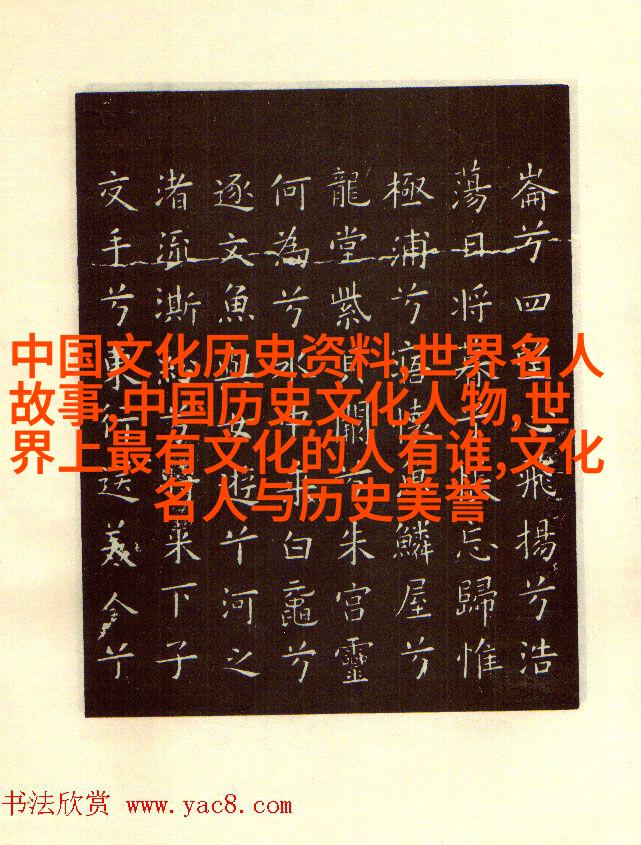 崙兮四望心飛揚兮浩
蕩日將暮兮悵忘歸惟
極浦兮寤懷魚鱗屋兮
龍堂紫貝闕兮朱宮靈
何為兮水中乘白黿兮
逐文魚與女遊兮河之
渚流澌紛兮將來下子
交手兮東行送美人兮
中国文化历史资料,世界名人
故事,中国历史文化人物,世
界上最有文化的人有谁,文化
名人与历史美誉
书法欣赏 www.yac8.com